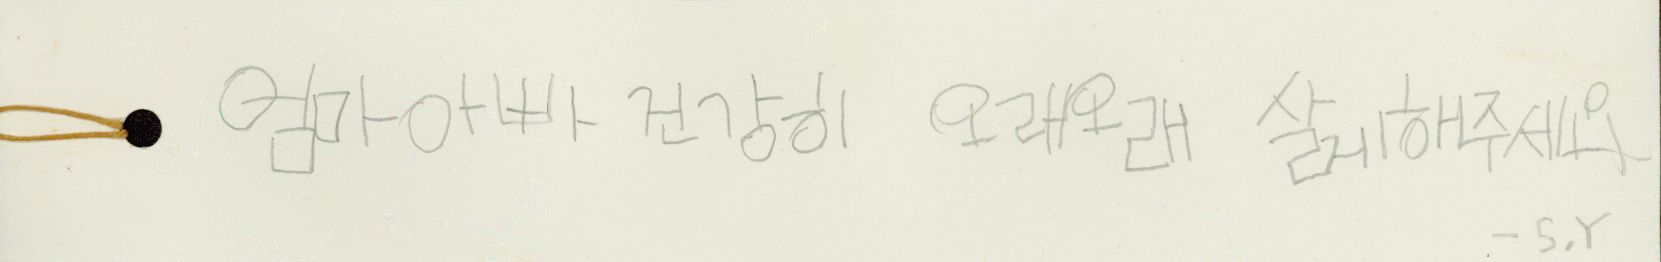 엄마아빠 건강히 오래오래 살게해주세요
- S.Y